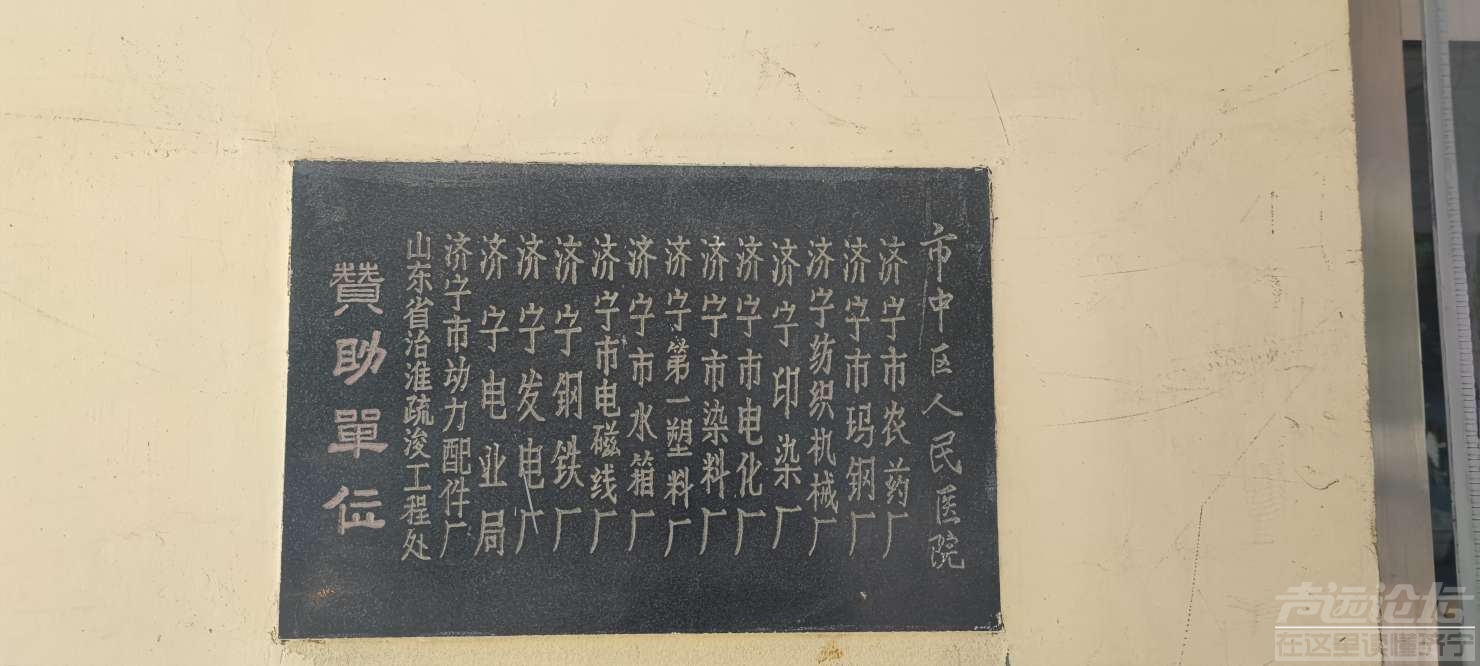 贊助單位
山东省治淮疏浚工程处
济宁市动力配件厂
济宁电业局
济宁发电厂
济宁钢铁厂
济宁市电磁线厂
济宁市水箱厂
济宁第一塑料厂
济宁市染料厂
济宁市电化厂
济宁印染厂
济宁纺织机械厂
济宁市玛钢厂
济宁市农药厂
市中区人民医院
声远论坛
在这里读懂济宁